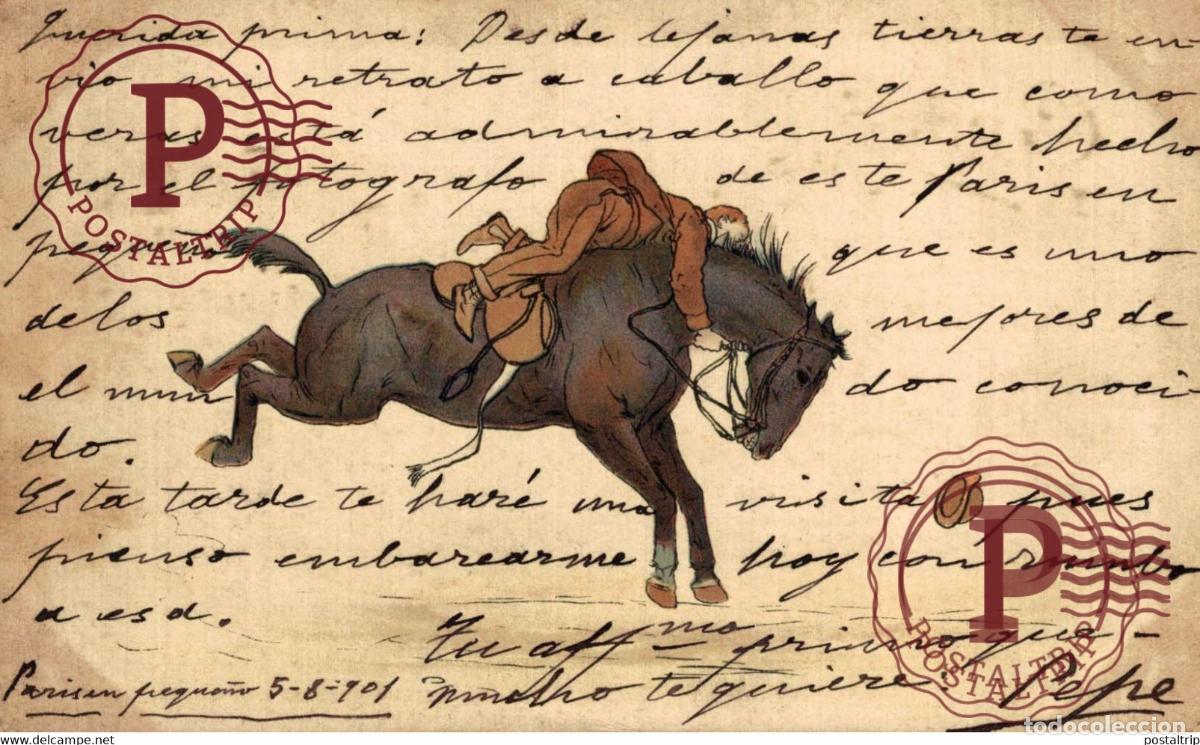 Querida prima: Desde lejanas tierras te en-
vio mi retrato a caballo que como
veras está admirablemente hecho
por el fotografo de este Paris en
pequeño que es uno
de los mejores de
el mun do conoci-
do.
Esta tarde te haré una visita pues
pienso embarcarme hoy con rumbo
a esa.
Tu aff mo primo que
mucho te quiere, Pepe
Paris en pequeño 5-8-901
P
POSTALTRIP
P
POSTALTRIP
POSTALTRIP
todocoleccion
www.delcampe.net
postaltrip